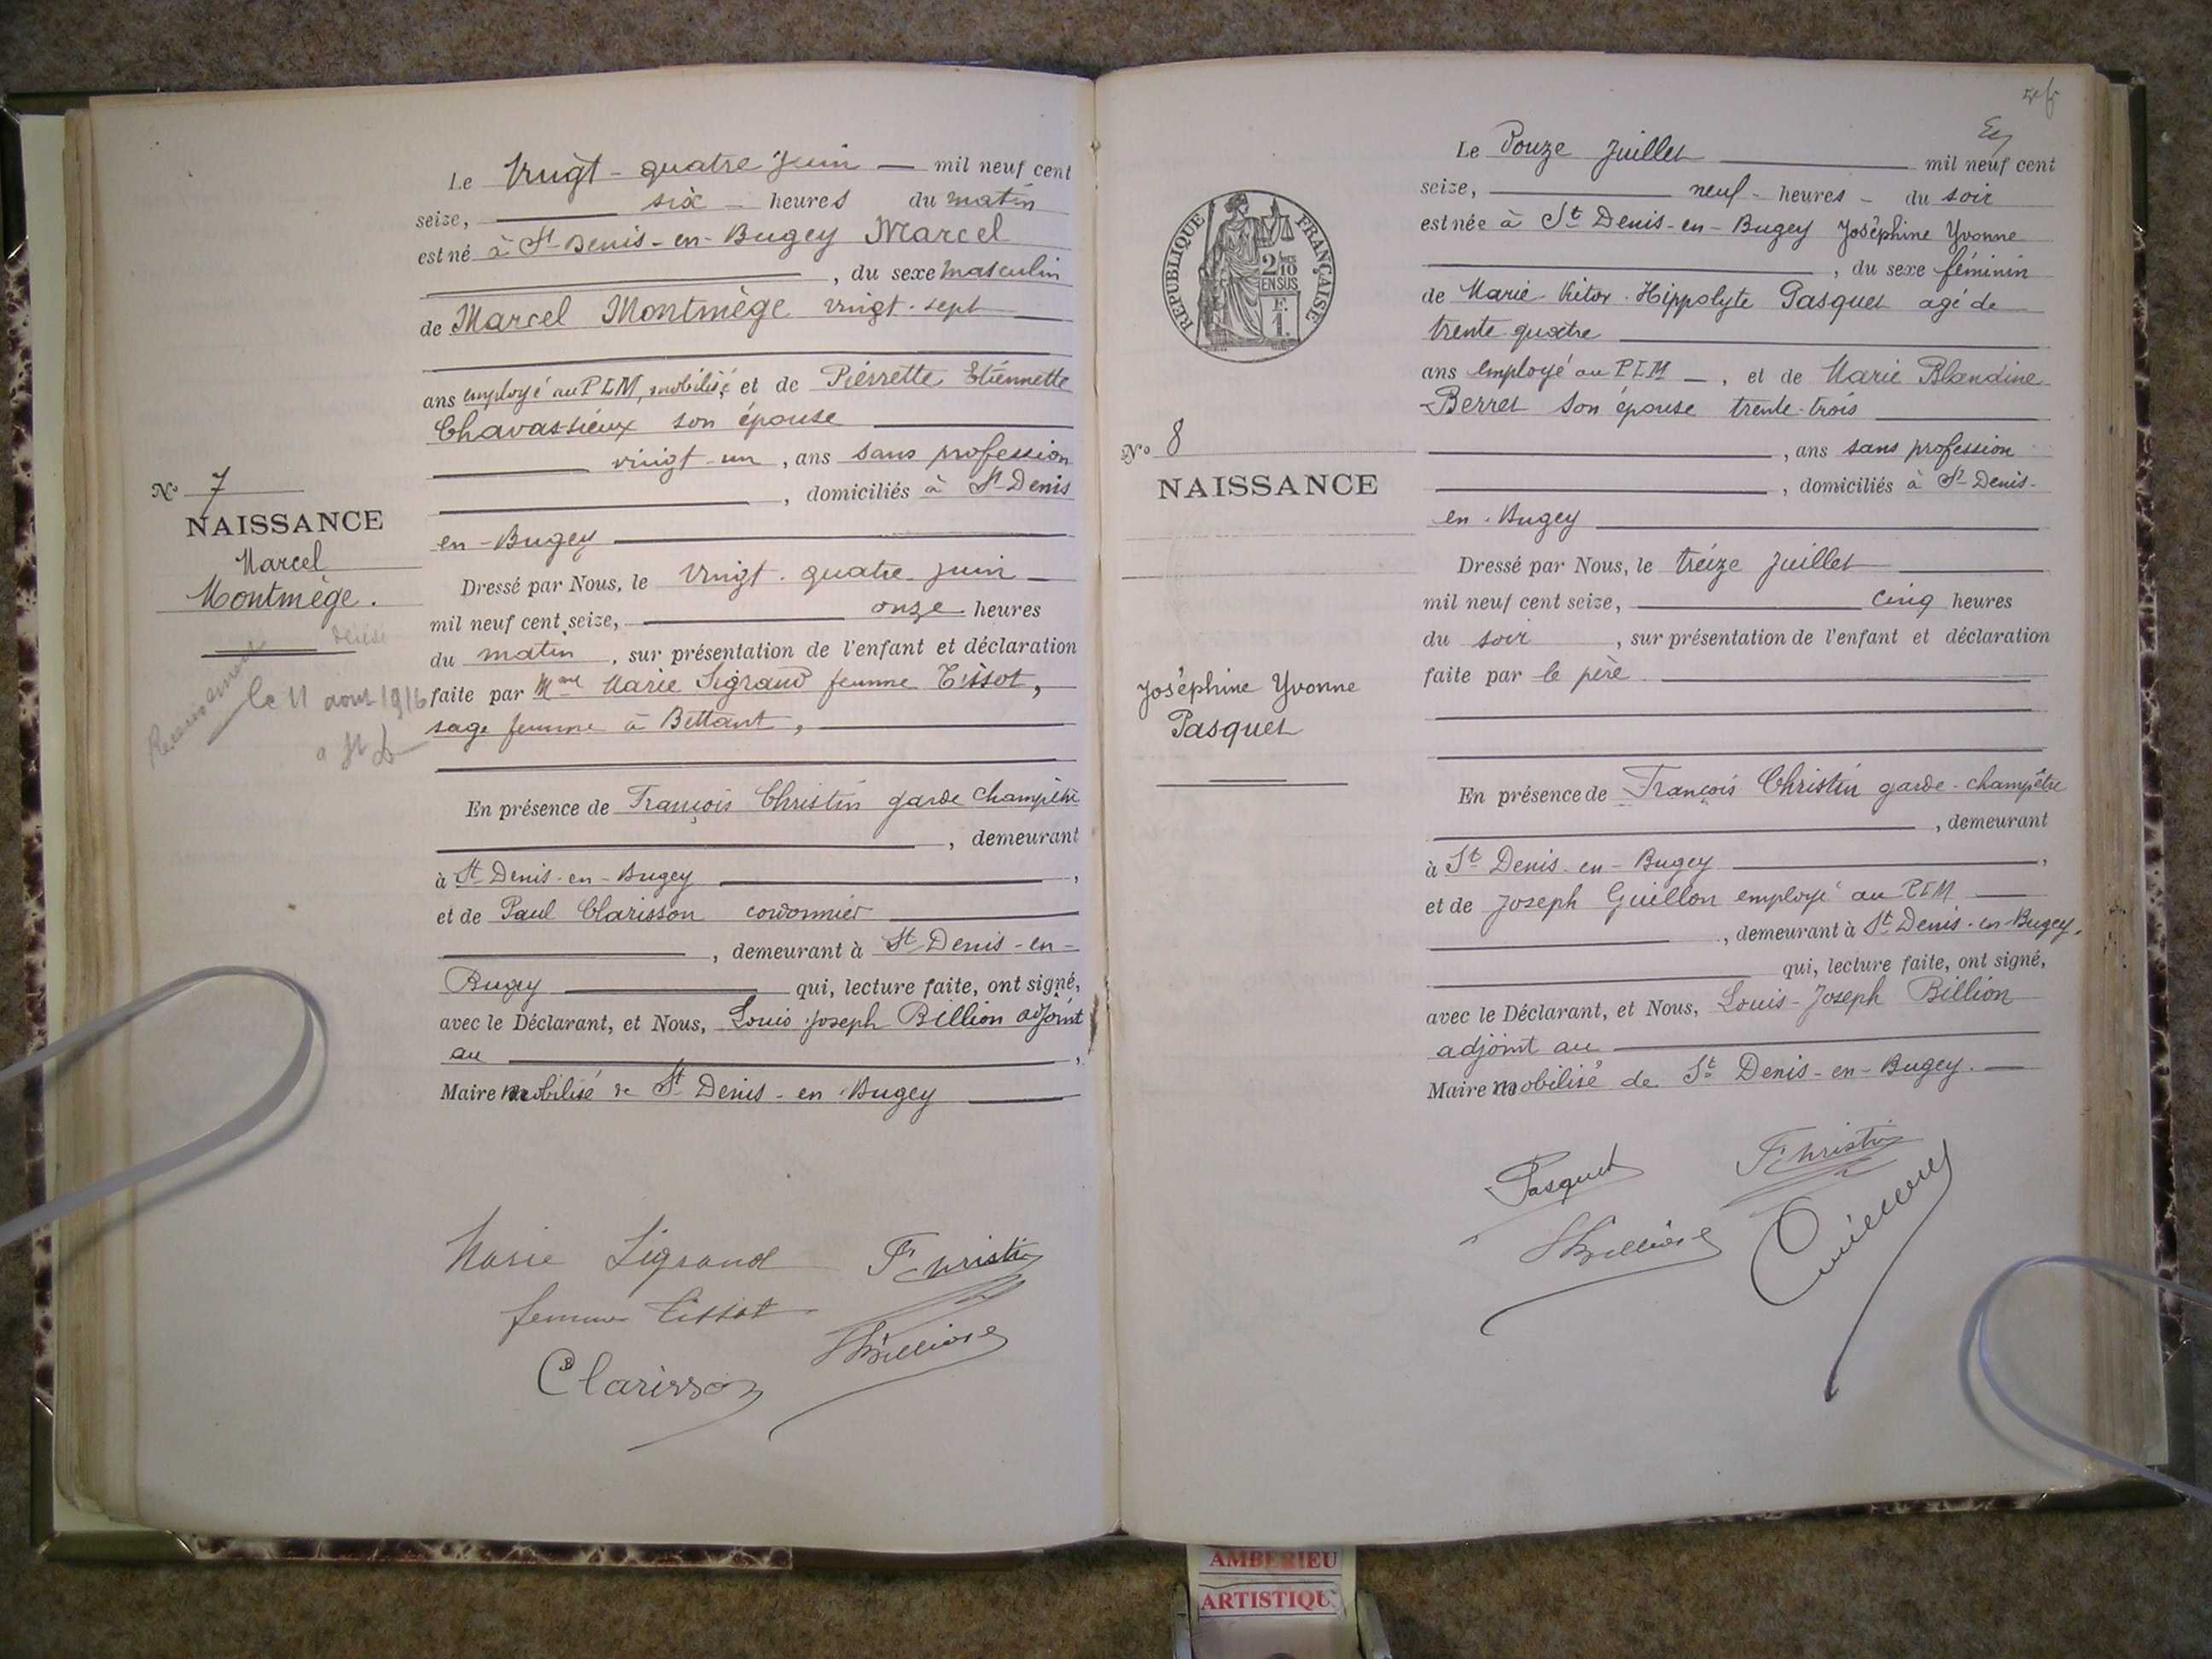 Le Vingt-quatre Juin — mil neuf cent
seize, six - heures du matin
est né à St Denis-en-Bugey Marcel
, du sexe masculin
de Marcel Montmège vingt-sept
ans employé au PLM, mobilisé et de Pierrette Etiennette
Chavassieux son épouse
vingt-un, ans sans profession
, domiciliés à St Denis
en-Bugey
Dressé par Nous, le Vingt-quatre Juin
mil neuf cent seize, onze heures
du matin, sur présentation de l'enfant et déclaration
faite par Mme Marie Ligrand femme Tissot,
sage femme à Bettant,
En présence de François Christin garde champêtre
, demeurant
à St Denis-en-Bugey,
et de Paul Clarisson cordonnier
, demeurant à St Denis-en-
Bugey qui, lecture faite, ont signé,
avec le Déclarant, et Nous, Louis Joseph Billion adjoint
au,
Maire mobilisé de St Denis-en-Bugey
Marie Ligrand
F Christin
femme Tissot
Billion
Clarisson
No 7
NAISSANCE
Marcel
Montmège.
décédé
le 11 aout 1916
a St D
Le Douze Juillet mil neuf cent
seize, neuf - heures - du soir
est née à St Denis-en-Bugey Joséphine Yvonne
, du sexe féminin
de Marie-Victor-Hippolyte Pasquet agé de
trente quatre
ans employé au PLM —, et de Marie Blandine
Berret son épouse trente-trois
, ans sans profession
, domiciliés à St Denis-
en-Bugey
Dressé par Nous, le treize Juillet
mil neuf cent seize, cinq heures
du soir, sur présentation de l'enfant et déclaration
faite par le père
En présence de François Christin garde-champêtre
, demeurant
à St Denis-en-Bugey,
et de Joseph Guillon employé au PLM
, demeurant à St Denis-en-Bugey,
qui, lecture faite, ont signé,
avec le Déclarant, et Nous, Louis-Joseph Billion
adjoint au
Maire mobilisé de St Denis-en-Bugey.
Pasquet
F Christin
Billion
Guillon
RÉPUBLIQUE FRANÇAISE
2/10
EN SUS
F.
1.
No 8
NAISSANCE
Joséphine Yvonne
Pasquet
AMBERIEU
ARTISTIQU